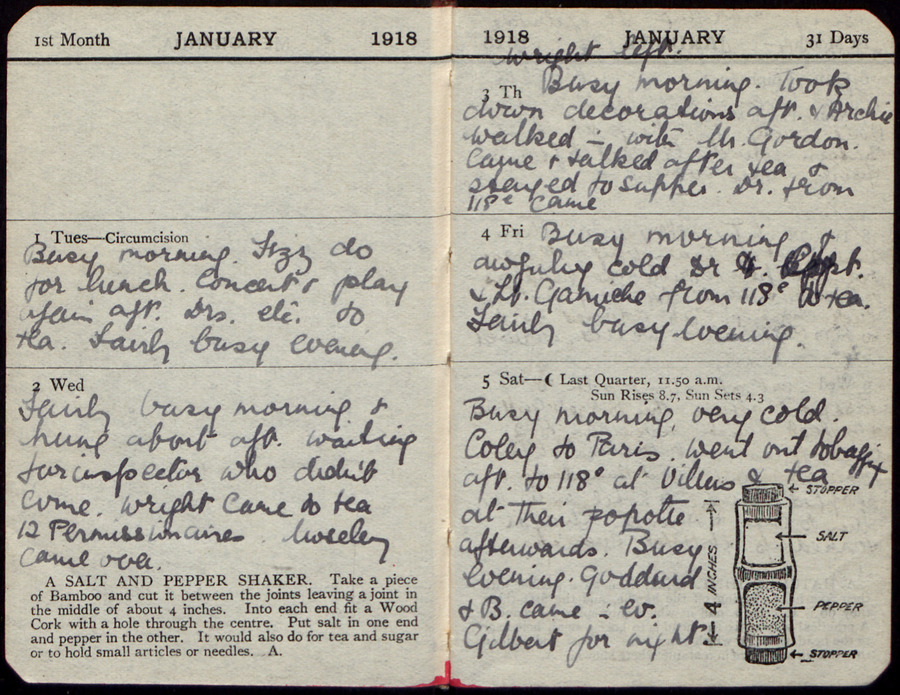 1st Month JANUARY 1918
1 Tues—Circumcision
Busy morning. Fizz do
for lunch. Concert & play
again aft. Drs. etc. to
tea. Fairly busy evening.
2 Wed
Fairly busy morning &
hung about aft. waiting
for inspector who didn't
come. Wright came to tea
12 Permissionaires. Moseley
came over.
A SALT AND PEPPER SHAKER. Take a piece
of Bamboo and cut it between the joints leaving a joint in
the middle of about 4 inches. Into each end fit a Wood
Cork with a hole through the centre. Put salt in one end
and pepper in the other. It would also do for tea and sugar
or to hold small articles or needles. A.
1918 JANUARY 31 Days
Wright left.
3 Th Busy morning. Took
down decorations aft. & Archie
walked – with Mr. Gordon.
Came & talked after tea &
stayed to supper. Dr. from
118e came
4 Fri Busy morning &
awfully cold Dr
& Lt. Garniche from 118e to tea.
Fairly busy evening.
5 Sat—☾ Last Quarter, 11.50 a.m.
Sun Rises 8.7, Sun Sets 4.3
Busy morning, very cold.
Coley to Paris. Went out
aft. to 118e at Villers & tea
at their popotte
afterwards. Busy
evening. Goddard
& B. came
Gilbert for night.
STOPPER
SALT
4 INCHES
PEPPER
STOPPER